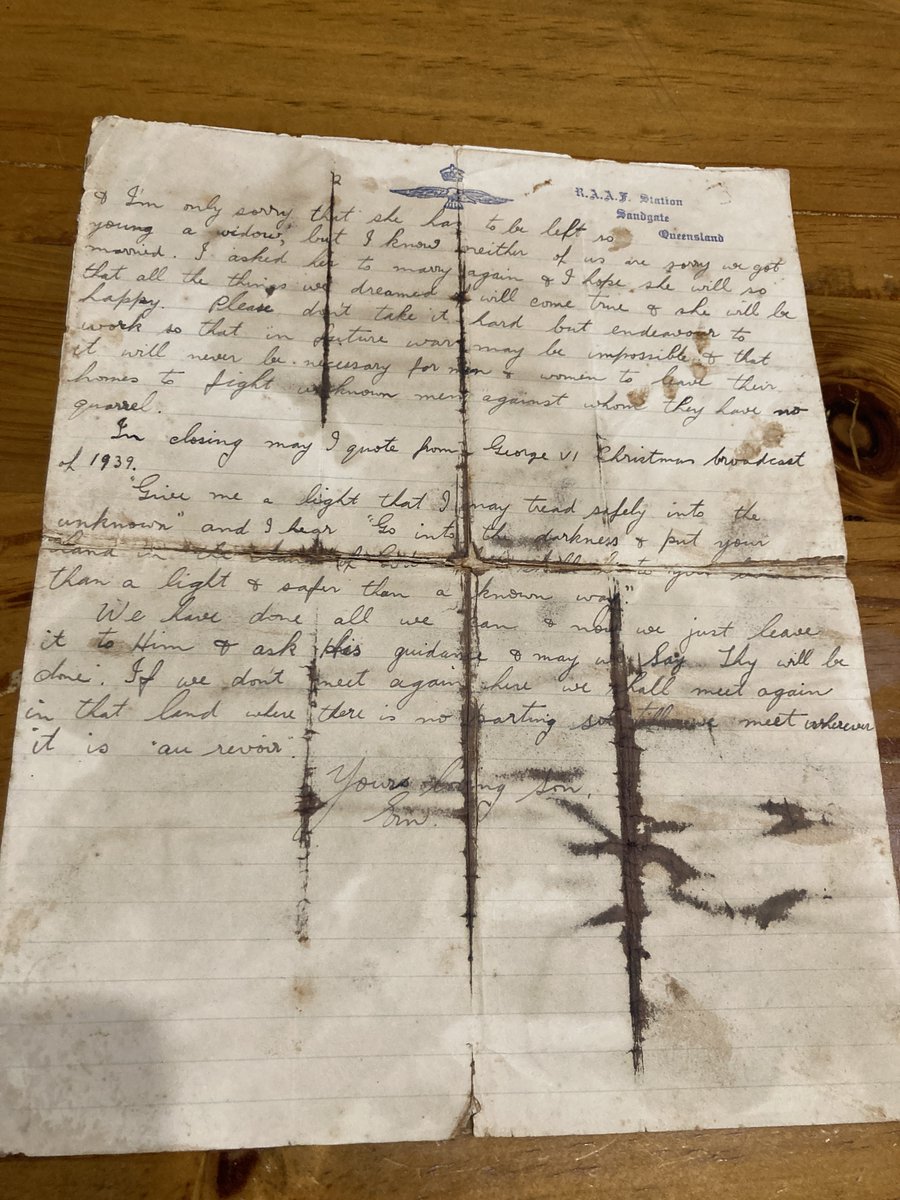 R.A.A.F. Station
Sandgate
Queensland
& I'm only sorry that she has to be left so
young a widow, but I know neither of us are sorry we got
married. I asked her to marry again & I hope she will so
that all the things we dreamed will come true & she will be
happy. Please don't take it hard but endeavour to
work so that in future war may be impossible & that
it will never be necessary for men & women to leave their
homes to fight unknown men against whom they have no
quarrel.
In closing may I quote from George VI Christmas broadcast
of 1939.
"Give me a light that I may tread safely into the
unknown" and I hear "Go into the darkness & put your
hand in the hand of
than a light & safer than a known way."
We have done all we can & now we just leave
it to Him & ask His guidance & may we say Thy will be
done. If we don't meet again here we shall meet again
in that land where there is no parting so till we meet wherever
it is "au revoir"
Yours loving son,
Ern.